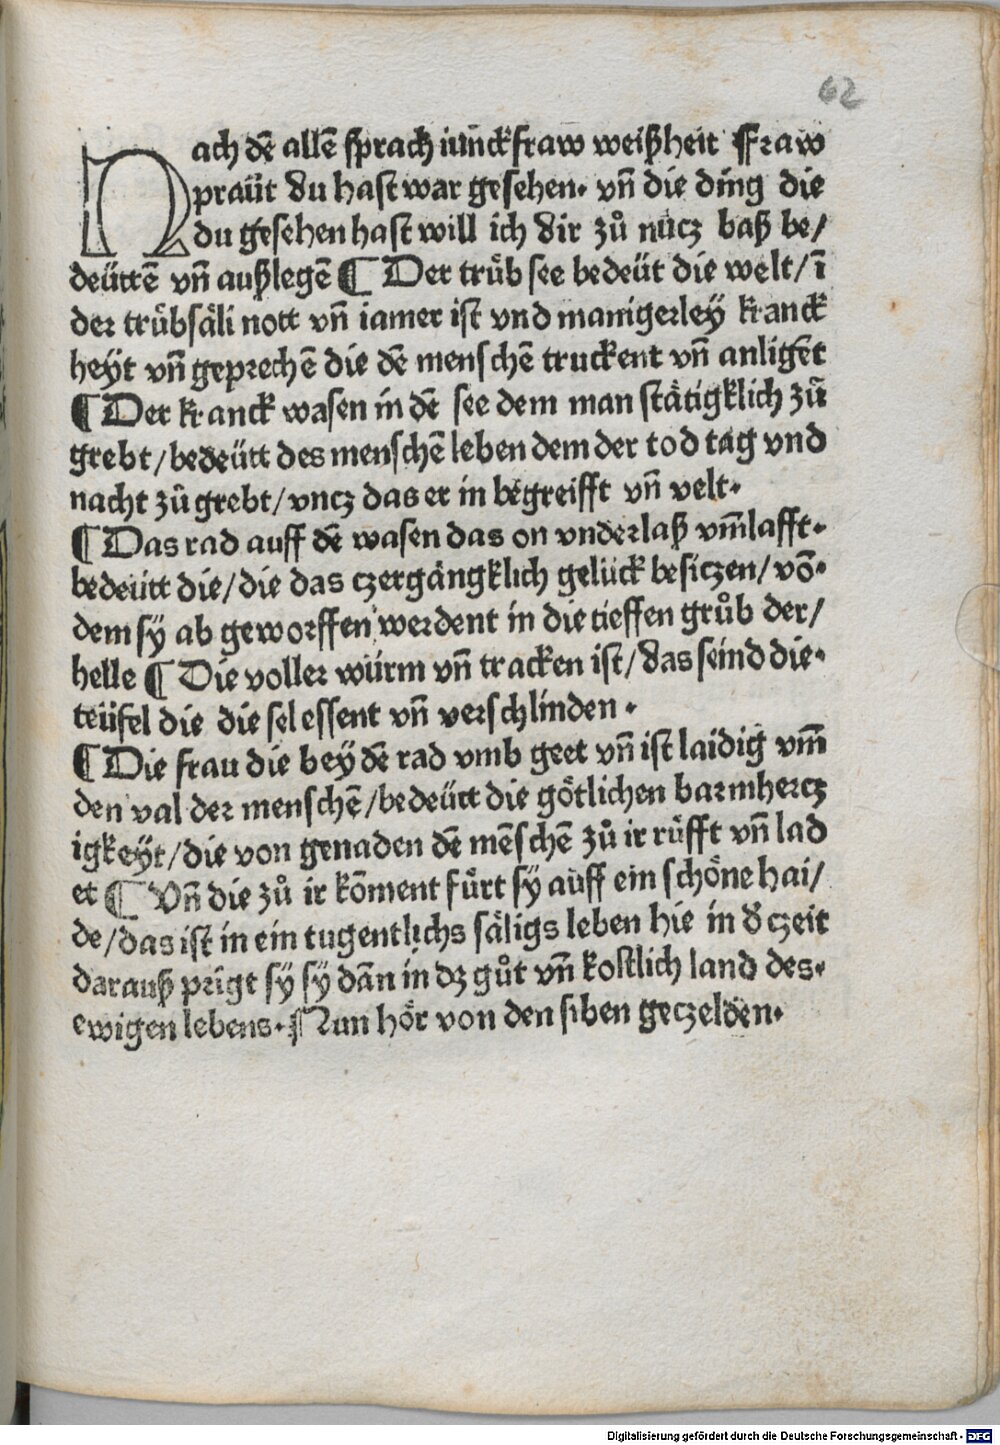 62
Nach dē allē sprach iunckfraw weißheit Fraw
praüt du hast war gesehen. vn̄ die ding die
du gesehen hast will ich dir zů nücz baß be/
deüttē vn̄ außlegē ¶ Der trůb see bedeüt die welt/ ī
der trůbsäli nott vn̄ iamer ist vnd manigerley kranck
heyt vn̄ geprechē die dē menschē truckent vn̄ anligēt
¶ Der kranck wasen in dē see dem man stätigklich zů
grebt/ bedeütt des menschē leben dem der tod tag vnd
nacht zů grebt/ vncz das er in begreifft vn̄ velt.
¶ Das rad auff dē wasen das on vnderlaß vm̄lafft.
bedeütt die/ die das czergängklich gelück besiczen/ vō.
dem sy̋ ab geworffen werdent in die tieffen grůb der/
helle ¶ Die voller würm vn̄ tracken ist/ das seind die.
teüfel die die sel essent vn̄ verschlinden .
¶ Die frau die bey dē rad vmb geet vn̄ ist laidig vm̄
den val der menschē/ bedeütt die götlichen barmhercz
igkeyt/ die von genaden dē mēschē zů ir růfft vn̄ lad
et ¶ Vn̄ die zů ir kōment fürt sy̋ auff ein schöne hai/
de/ das ist in ein tugentlichs säligs leben hie in d̕ czeit
darauß prīgt sy̋ sy̋ dān in dz gůt vn̄ kostlich land des.
ewigen lebens. ¶ Nun hör von den siben geczelden.
Digitalisierung gefördert durch die Deutsche Forschungsgemeinschaft - DFG